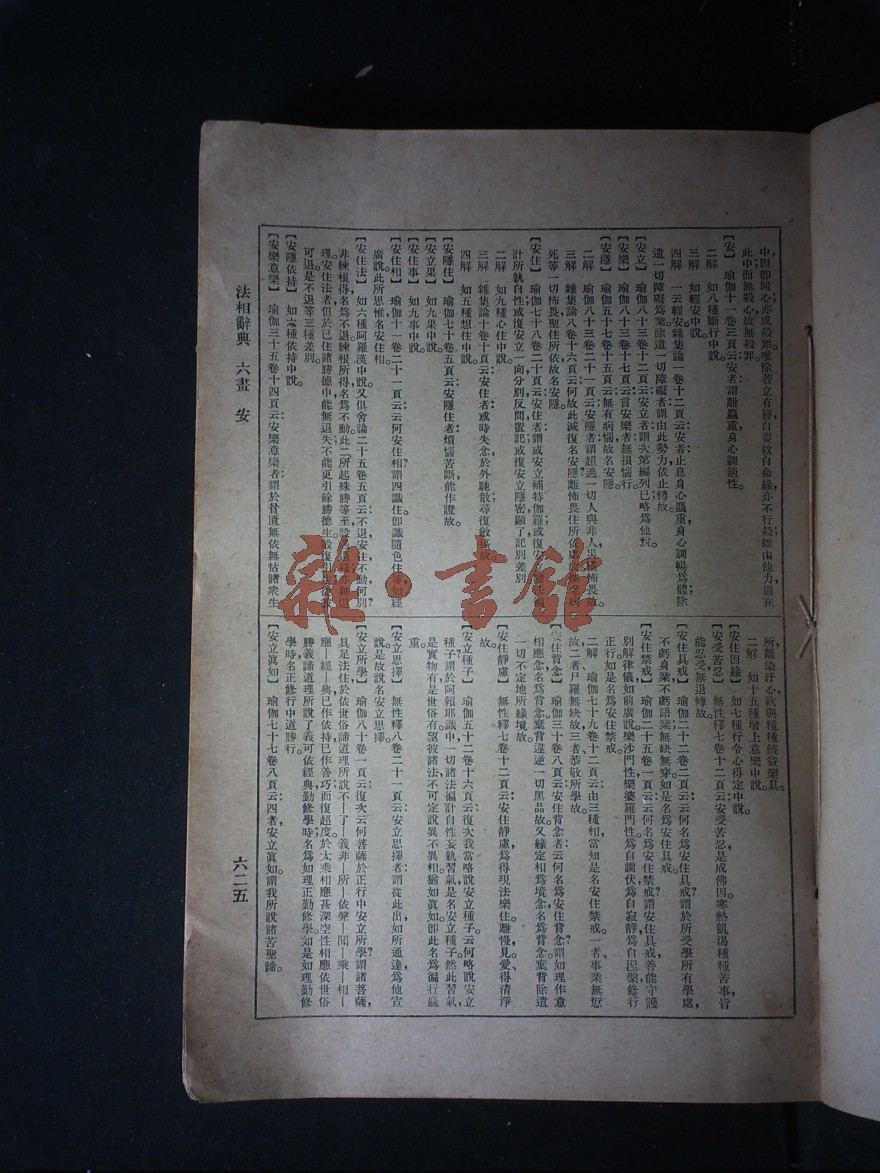 中間卽同心亦成殺罪。唯除若立有誓自要救自命緣亦不行殺雖由他力過在
此中而無殺心故無殺罪。
【安】 瑜伽十一卷三頁云安者謂離麤重身心調適性。
二解 如八種斷行中說。
三解 如輕安中說。
四解 一云輕安雜集論一卷十二頁云安者止息身心麤重身心調暢爲體除
遣一切障礙爲業除遣一切障礙者謂由此勢力依止轉故。
【安立】 瑜伽八十三卷十二頁云安立者謂次第編列已略爲他説。
【安樂】 瑜伽八十三卷十七頁云言安樂者無損惱行
【安隱】 瑜伽五十七卷十五頁云無有病惱故名安隱。
二解 瑜伽八十三卷二十一頁云安隱者謂超過一切人與非人災橫怖畏故。
三解 雜集論八卷十六頁云何故此滅復名安隱離怖畏住所依處故
死等一切怖畏聖住所依故名安隱。
【安住】 瑜伽七十八卷二十頁云安住者謂或安立補特伽羅或復安立諸法徧
計所執自性或復安立一向分別反問置記或復安立隱密顯了記別差別
二解 如九種心住中說。
三解 雜集論十卷十頁云安住者或時失念於外馳散尋復斂攝故。
四解 如五種想住中說。
【安隱住】 瑜伽七十卷五頁云安隱住者煩惱苦斷能作證故。
【安立果】 如九果中說。
【安住事】 如九事中說。
【安住相】 瑜伽十一卷二十一頁云云何安住相謂四識住卽識隨色住等如經
廣說此所思惟名安住相。
【安住法】 如六種阿羅漢中說。又俱舍論二十五卷五頁云不退安住不動何別
非練根得名爲不退練根所得名爲不動此二所起殊勝等至設遇退緣亦無退
理安住法者但於已住諸勝德中能無退失不能更引餘勝德生設復引生從彼
可退是不退等三種差別。
【安隱依持】 如六種依持中說。
【安樂意樂】 瑜伽三十五卷十四頁云安樂意樂者謂於貧匱無依無怙諸衆生
所離染汙心欲與種種饒益樂具。
二解 如十五種增上意樂中說。
【安住因緣】 如七種行令心得定中說。
【安受苦忍】 無性釋七卷十二頁云安受苦忍是成佛因寒熱飢渴種種苦事皆
能忍受無退轉故。
【安住具戒】 瑜伽二十二卷二頁云云何名爲安住具戒謂於所受學所有學處
不虧身業不虧語業無缺無穿如是名爲安住具戒。
【安住禁戒】 瑜伽二十五卷一頁云云何名爲安住禁戒謂安住具戒善能守護
別解律儀如前廣說。樂沙門性樂婆羅門性爲自調伏爲自寂靜爲自涅槃修行
正行如是名爲安住禁戒。
二解 瑜伽七十九卷十二頁云由三種相當知是名安住禁戒一者事業無愆
故二者尸羅無缺故三者恭敬所學故。
【安住背念】 瑜伽三十卷八頁云安住背念者云何名爲安住背念謂如理作意
相應念名爲背念棄背違逆一切黑品故又緣定相爲境念名爲背念棄背除遣
一切不定地所緣境故。
【安住靜慮】 無性釋七卷十二頁云安住靜慮爲得現法樂住離慢見愛得清淨
故。
【安立種子】 瑜伽五十二卷十六頁云復次我當略說安立種子云何略說安立
種子謂於阿賴耶識中一切諸法徧計自性妄執習氣是名安立種子然此習氣
是實物有是世俗有望彼諸法不可定說異不異相猶如眞如卽此名爲徧行麤
重。
【安立思擇】 無性釋八卷二十一頁云安立思擇者謂從此出如所通達爲他宣
說是故說名安立思擇。
【安立所學】 瑜伽八十卷一頁云復次云何菩薩於正行中安立所學謂諸菩薩
具足法住於依世俗諦道理所說不—了—義非—所—依聲—聞—乘—相—
應—經—典已作依持已作善巧而復超度於大乘相應甚深空性相應依世俗
勝義諦道理所說了義可依經典勤修學時名爲如理正勤修學如是如理勤修
學時名正修行中道勝行。
【安立眞如】 瑜伽七十七卷八頁云四者安立眞如謂我所說諸苦聖諦。
法相辭典 六畫 安
六二五
雜·書館